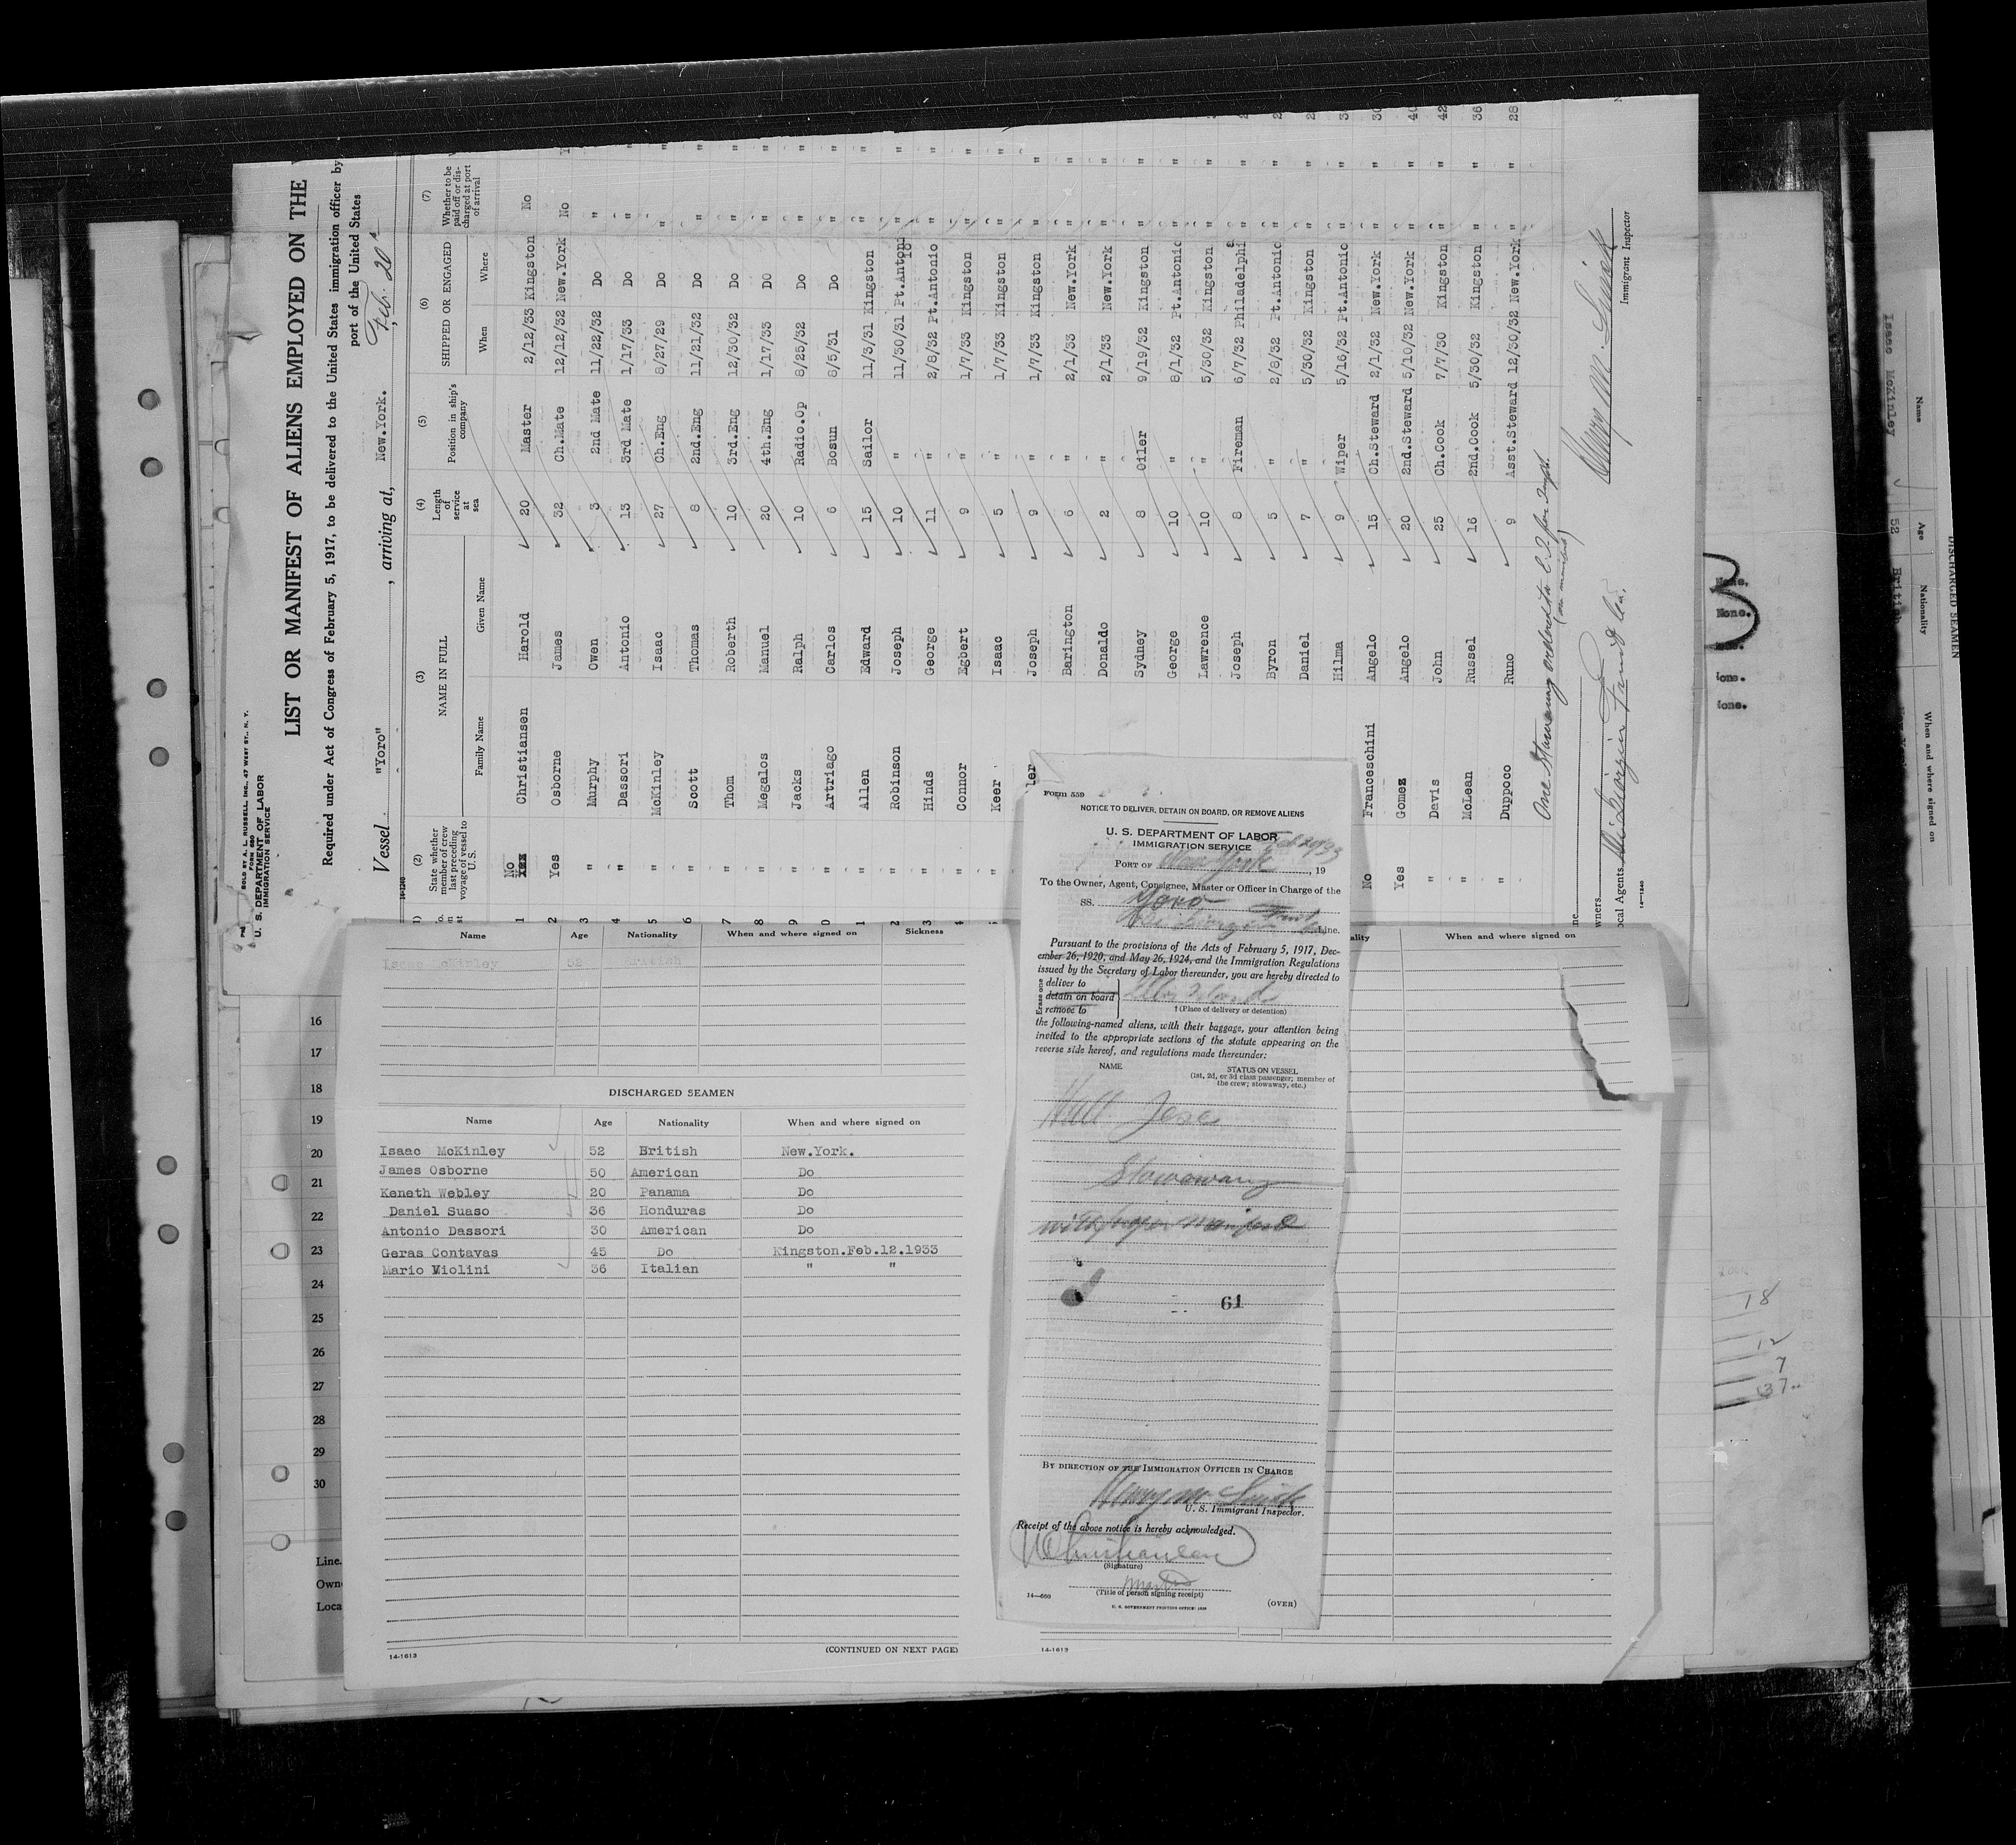 SOLD BY A. L. RUSSELL, INC., 47 WEST ST., N. Y.
FORM 680
U. S. DEPARTMENT OF LABOR
IMMIGRATION SERVICE
LIST OR MANIFEST OF ALIENS EMPLOYED ON THE
Required under Act of Congress of February 5, 1917, to be delivered to the United States immigration officer by
port of the United States
Vessel "Yoro" , arriving at, New.York. , Feb. 20
14-1240
(2) (3) (4) (5) (6) (7)
State whether member of crew last preceding voyage of vessel to U. S.
NAME IN FULL
Family Name Given Name
Length of service at sea
Position in ship's company
SHIPPED OR ENGAGED
When Where
Whether to be paid off or discharged at port of arrival
1 No Christiansen Harold 20 Master 2/12/33 Kingston No
2 Yes Osborne James 32 Ch.Mate 12/12/32 New.York No
3 " Murphy Owen 3 2nd Mate 11/22/32 Do "
4 " Dassori Antonio 13 3rd Mate 1/17/33 Do " "
5 " McKinley Isaac 27 Ch.Eng 8/27/29 Do " "
6 " Scott Thomas 8 2nd.Eng 11/21/32 Do " "
7 " Thom Roberth 10 3rd.Eng 12/30/32 Do " "
8 " Megalos Manuel 20 4th.Eng 1/17/33 DO " "
9 " Jacks Ralph 10 Radio.Op 8/25/32 Do " "
0 " Artriago Carlos 6 Bosun 8/5/31 Do " "
1 " Allen Edward 15 Sailor 11/3/31 Kingston " "
2 " Robinson Joseph 10 " 11/30/31 Pt.Antonio " "
3 " Hinds George 11 " 2/8/32 Pt.Antonio " "
4 " Connor Egbert 9 " 1/7/33 Kingston " "
" Keer Isaac 5 " 1/7/33 Kingston " "
ler Joseph 9 " 1/7/33 Kingston " "
Barington 6 " 2/1/33 New.York " "
Donaldo 2 " 2/1/33 New.York " "
Sydney 8 Oiler 9/19/32 Kingston " "
George 10 " 8/1/32 Pt.Antonio " "
Lawrence 10 " 5/30/32 Kingston " "
Joseph 8 Fireman 6/7/32 Philadelphia " "
Byron 5 " 2/8/32 Pt.Antonio " "
Daniel 7 " 5/30/32 Kingston " "
Hilma 9 Wiper 5/16/32 Pt.Antonio " "
No Franceschini Angelo 15 Ch.Steward 2/1/32 New.York " " 30
Yes Gomez Angelo 20 2nd.Steward 5/10/32 New.York " " 40
" Davis John 25 Ch.Cook 7/7/30 Kingston " " 42
" McLean Russel 16 2nd.Cook 5/30/32 Kingston " " 36
" Duppoco Runo 9 Asst.Steward 12/30/32 New.York " " 28
One Stowaway ordered to E. I. for Inspt.
Immigrant Inspector
wners
ocal Agents Di Giorgio Fruit Co.
14-1240
Name Age Nationality When and where signed on Sickness
Isaac McKinley 52 British
DISCHARGED SEAMEN
Name Age Nationality When and where signed on
Isaac McKinley 52 British New.York.
James Osborne 50 American Do
Keneth Webley 20 Panama Do
Daniel Suaso 36 Honduras Do
Antonio Dassori 30 American Do
Geras Contavas 45 Do Kingston.Feb.12.1933
Mario Violini 36 Italian " "
(CONTINUED ON NEXT PAGE)
14-1613
FORM 559
NOTICE TO DELIVER, DETAIN ON BOARD, OR REMOVE ALIENS
U. S. DEPARTMENT OF LABOR
IMMIGRATION SERVICE
Feb 20/33
PORT OF New York , 19
To the Owner, Agent, Consignee, Master or Officer in Charge of the
SS. Yoro
Di Giorgio Fruit Co Line.
Pursuant to the provisions of the Acts of February 5, 1917, Dec-
ember 26, 1920, and May 26, 1924, and the Immigration Regulations
issued by the Secretary of Labor thereunder, you are hereby directed to
Erase one
deliver to
detain on board
remove to
Ellis Island
† (Place of delivery or detention)
the following-named aliens, with their baggage, your attention being
invited to the appropriate sections of the statute appearing on the
reverse side hereof, and regulations made thereunder:
NAME STATUS ON VESSEL
(1st, 2d, or 3d class passenger; member of
the crew; stowaway, etc.)
Hall Jose
Stowaway
with proper manifest
61
BY DIRECTION OF THE IMMIGRATION OFFICER IN CHARGE
U. S. Immigrant Inspector.
Receipt of the above notice is hereby acknowledged.
H Christiansen
(Signature)
Master
(Title of person signing receipt)
14-660
U. S. GOVERNMENT PRINTING OFFICE: 1929
(OVER)
ality When and where signed on
14-1613
16
17
18
19
20
21
22
23
24
25
26
27
28
29
30
Line.
Own
Loca
None.
None.
ione.
ione.
18
12
7
37
DISCHARGED SEAMEN
Name Age Nationality When and where signed on
Isaac McKinley 52 British